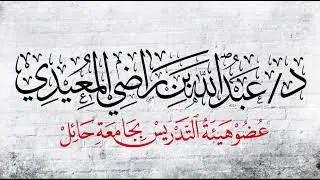 د/ عَبْدُ اللَّهِ بْنِ رَاضِي المُعَيْدِي
عُضْو هَيْئَةِ التَّدْرِيْسِ بِجَامِعَةِ حَائِلْ